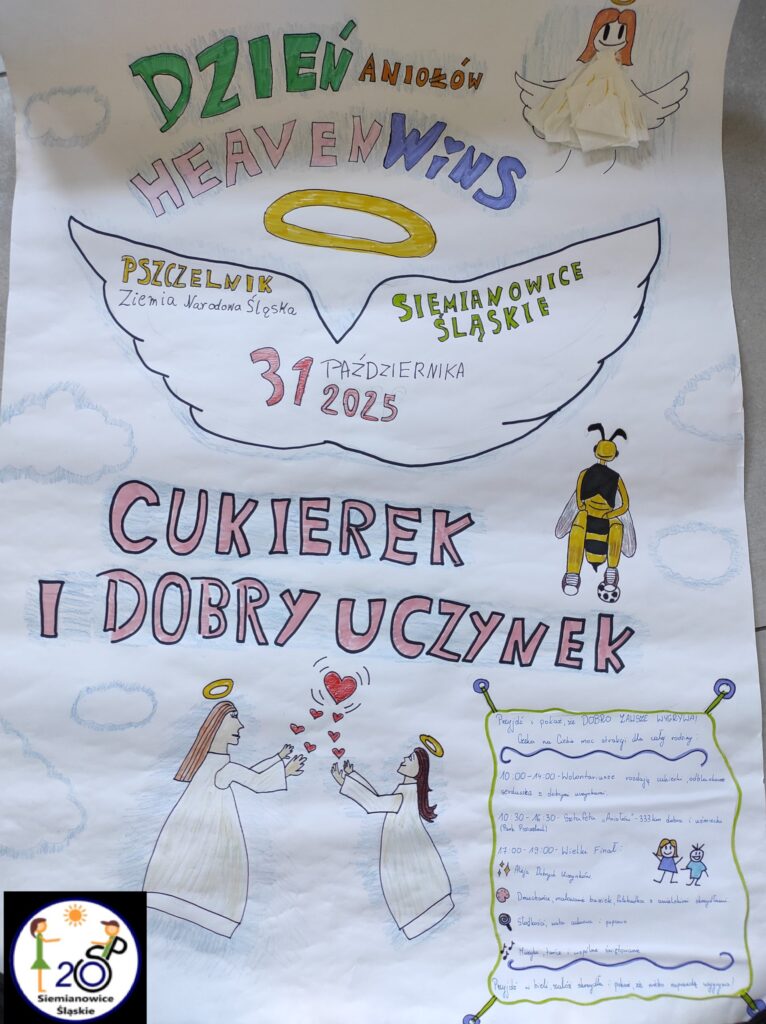 DZIEŃ ANIOŁÓW
HEAVEN WiNS
PSZCZELNIK
Ziemia Narodowa Śląska
SIEMIANOWICE
ŚLĄSKIE
31 PAŹDZIERNIKA
2025
CUKIEREK
I DOBRY UCZYNEK
Przyjdź i pokaż, że DOBRO ZAWSZE WYGRYWA!
Czeka na Ciebie moc atrakcji dla całej rodziny:
10.00-14:00 - Wolontariusze rozdają cukierki, odblaskowe
serduszka z dobrymi uczynkami.
10:30-16:30 Sztafeta „Aniołów" - 333 km dobra i uśmiechu
(Park Pszczelnik)
17:00-19:00 - Wielki Finał:
Aleja Dobrych Uczynków
Dmuchańce, malowanie buziek, fotobudka z anielskimi skrzydłami
Słodkości, wata cukrowa i popcorn
Muzyka, tańce i wspólne świętowanie
Przyjdź w bieli, załóż skrzydła i pokaż, że niebo naprawdę wygrywa!
SP
20
Siemianowice
Śląskie